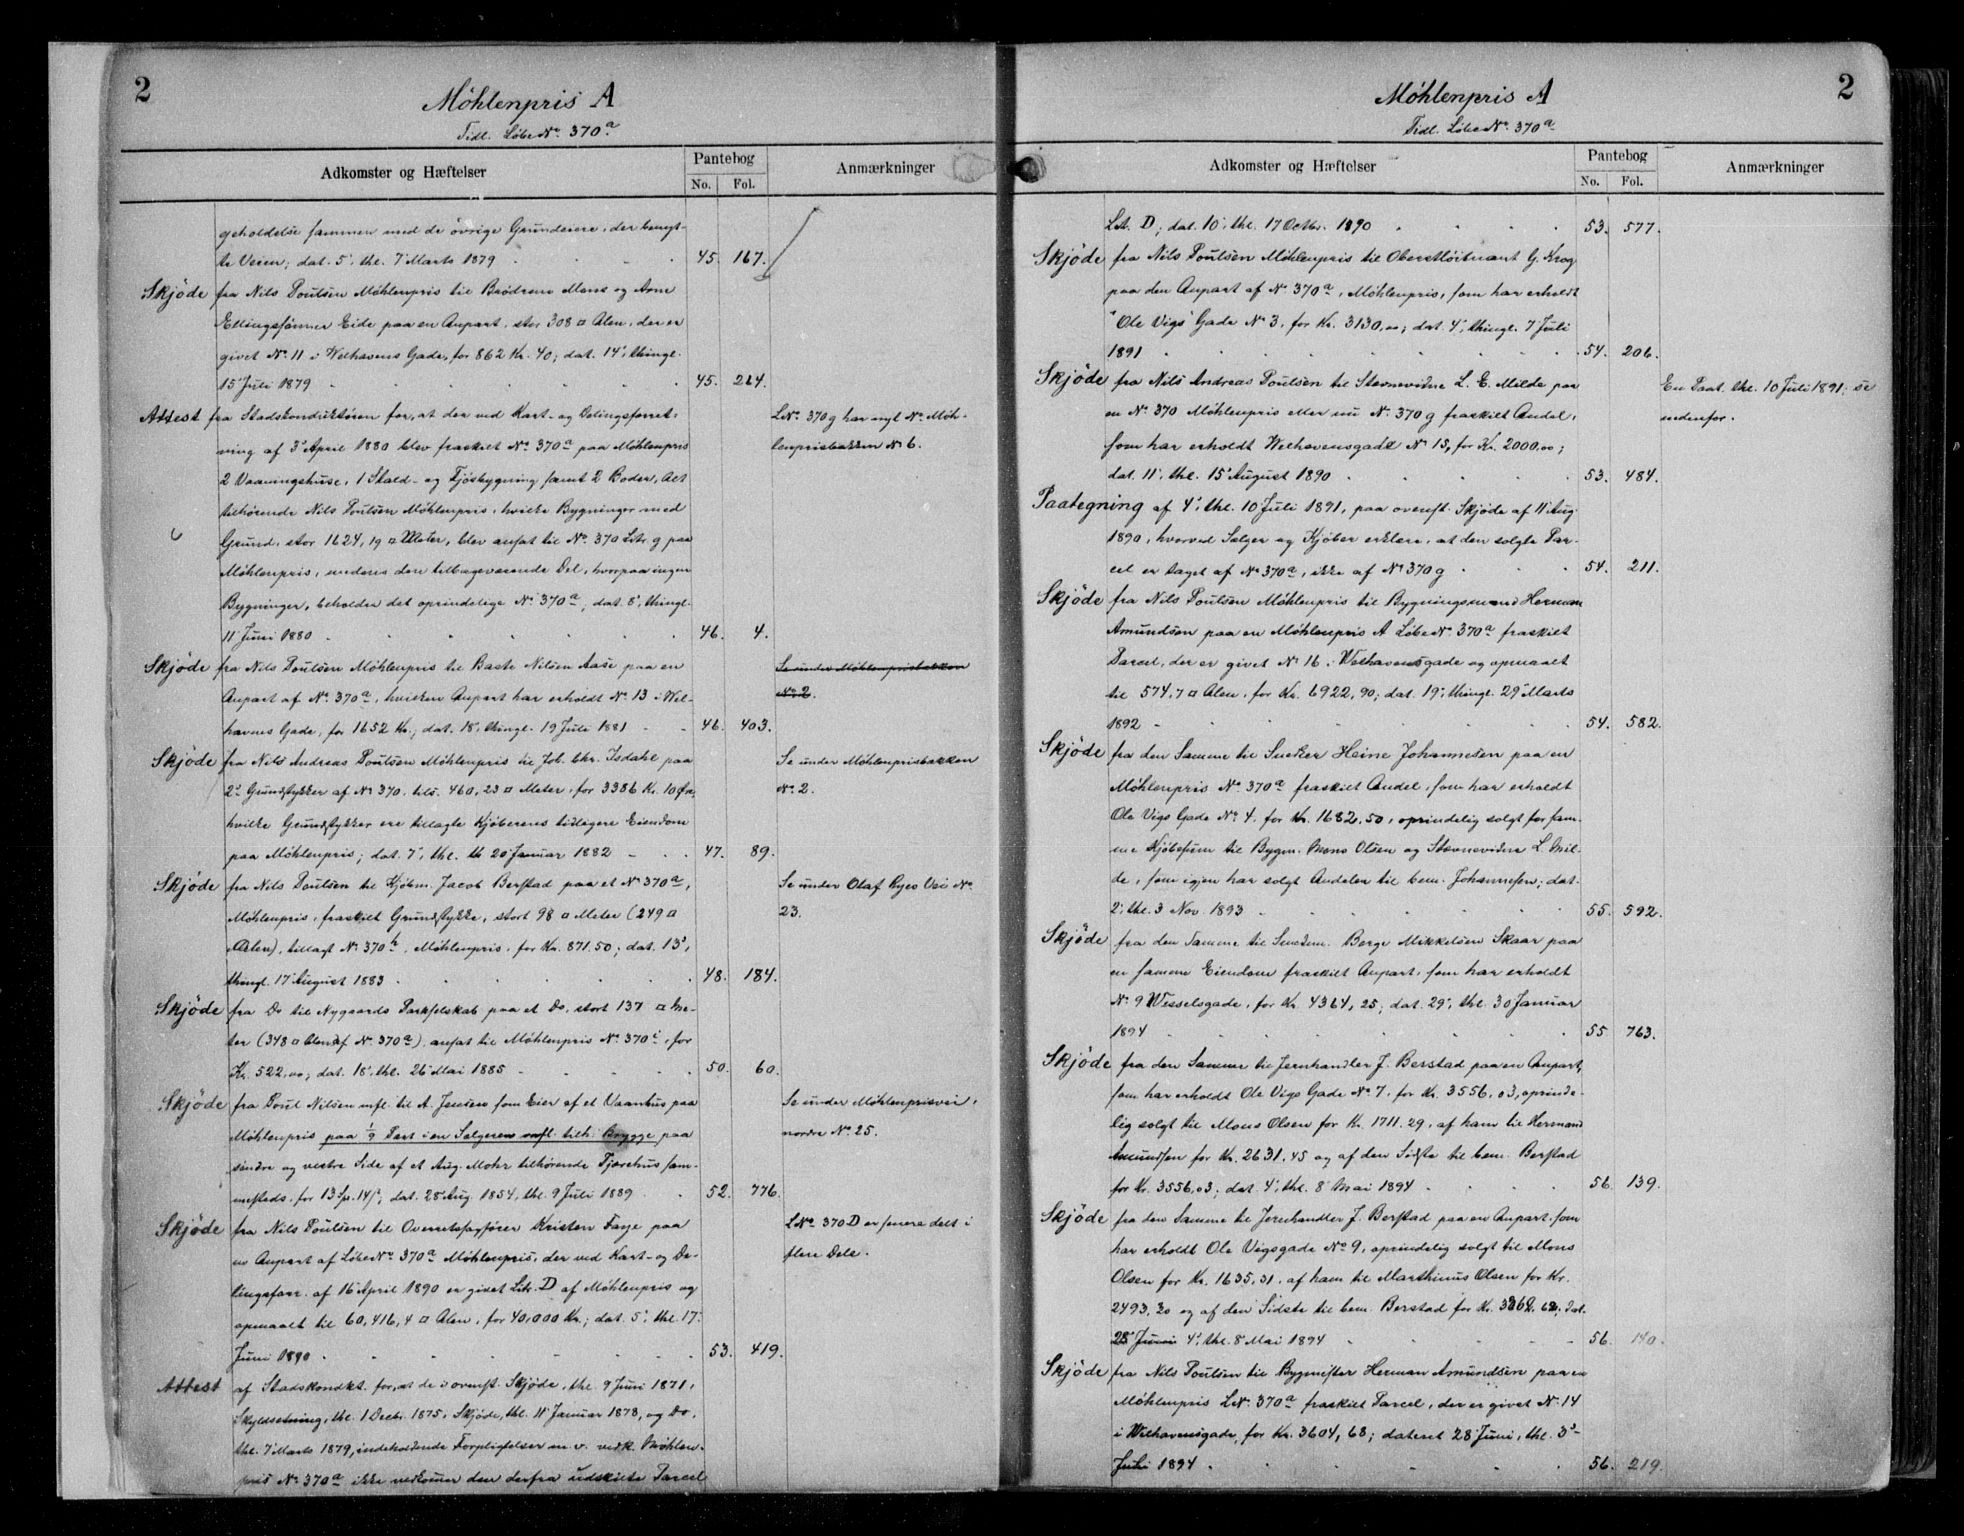 2
Möhlenpris A
Tidl. Löbe No. 370a
Adkomster og Hæftelser
Pantebog
No. Fol.
Anmærkninger
geholdelse sammen med de övrige Grundeiere, der benyt-
te Veien; dat. 5', thl. 7' Marts 1879 45. 167.
Skjöde fra Nils Poulsen Möhlenpris til Brödrene Mons og Arne
Ellingssönner Eide paa en Anpart, stor 308 □ Alen, der er
givet No. 11 i Welhavens Gade, for 862 Kr. 40; dat. 14', thingl.
15' Juli 1879 45. 264.
Attest fra Stadskonduktören for, at der ved Kart- og Delingsforret-
ning af 3' April 1880 blev fraskilt No. 370a paa Möhlenpris
2 Vaaningshuse, 1 Stald- og Fjösbygning samt 2 Boder, Alt
tilhörende Nils Poulsen Möhlenpris, hvilke Bygninger med
Grund, stor 1624,19 □ Meter, blev ansat til No. 370 Litr. g paa
Möhlenpris, medens den tilbageværende Del, hvorpaa ingen
Bygninger, beholder det oprindelige No. 370a; dat. 8', thingl.
11' Juni 1880 46. 4.
LNo. 370 g har nyt No. Möh-
lenprisbakken No 6.
Skjöde fra Nils Poulsen Möhlenpris til Baste Nilsen Aase paa en
Anpart af No. 370a, hvilken Anpart har erholdt No. 13 i Wel-
havens Gade, for 1652 Kr.; dat. 18', thingl. 19' Juli 1881 46. 403.
Se under Möhlenprisbakken
No. 2.
Skjöde fra Nils Andreas Poulsen Möhlenpris til Joh. Chr. Isdahl paa
2' Grundstykker af No 370. tils. 460,23 □ Meter, for 3386 Kr. 10 Öre,
hvilke Grundstykker ere tillagte Kjöberens tidligere Eiendom
paa Möhlenpris; dat. 7', thl. th 20' Januar 1882 47. 89.
Se under Möhlenprisbakken
No. 2.
Skjöde fra Nils Poulsen til Kjöbm. Jacob Berstad paa et No 370a,
Möhlenpris, fraskilt Grundstykke, stort 98 □ Meter (249 □
Alen), tillagt No. 370h, Möhlenpris, for Kr. 871.50; dat. 13',
thingl. 17' August 1883 48. 184.
Se under Olaf Ryes Vei No.
23.
Skjöde fra Do til Nygaards Parkselskab paa et Do, stort 137 □ Me-
ter (348 □ Alen af No. 370a) ansat til Möhlenpris No. 370i, for
Kr. 522,00; dat. 18', thl. 26' Mai 1885 50. 60.
Skjöde fra Poul Nilsen mfl. til A. Jensen som Eier af et Vaanhus paa
Möhlenpris paa 1/9 Part i en Sælgeren mfl. tilh. Brygge paa
söndre og vestre Side af et Aug. Mohr tilhörende Tjærehus sam-
mesteds, for 13 Sp. 14 ß; dat. 28' Aug. 1854, thl. 9' Juli 1889 52. 776.
Se under Möhlenprisvei,
nordre No. 25.
Skjöde fra Nils Poulsen til Overretssagförer Kristen Faye paa
en Anpart af Löbe No. 370a Möhlenpris, der ved Kart- og De-
lingsforr. af 16' April 1890 er givet Litr. D af Möhlenpris og
opmaalt til 60,416,4 □ Alen, for 40,000 Kr.; dat. 5', thl. 17'
Juni 1890 53. 419.
LNo. 370 D er senere delt i
flere Dele.
Attest af Stadskondkt. for, at de i ovenst. Skjöde, thl. 9' Juni 1871,
Skyldsetning, thl. 1' Decbr. 1875, Skjöde, thl. 11' Januar 1878, og Do,
thl. 7' Marts 1879, indeholdende Forpligtelser m. v. vedk. Möhlen-
pris No. 370a ikke vedkommer den derfra udskilte Parcel
2
Möhlenpris A
Tidl. Löbe No. 370a
Adkomster og Hæftelser
Pantebog
No. Fol.
Anmærkninger
Litr. D; dat. 10', thl. 17' Octbr. 1890 53. 577.
Skjöde fra Nils Poulsen Möhlenpris til Oberstlöitnant G. Krog
paa den Anpart af No. 370a, Möhlenpris, som har erholdt
"Ole Vigs" Gade No 3, for Kr. 3130,00; dat. 4', thingl. 7' Juli
1891 54. 206.
Skjöde fra Nils Andreas Poulsen til Stevnevidne L. E. Milde paa
en No. 370 Möhlenpris eller nu No. 370 g fraskilt Andel,
som har erholdt Welhavensgade No 15, for Kr. 2000,00;
dat. 11', thl. 15' August 1890 53. 484.
En Paat. thl. 10' Juli 1891; se
nedenfor.
Paategning af 4', thl. 10' Juli 1891, paa ovenst. Skjöde af 11' Aug.
1890, hvorved Sælger og Kjöber erklære, at den solgte Par-
cel er taget af No 370a, ikke af No 370 g 54. 211.
Skjöde fra Nils Poulsen Möhlenpris til Bygningsmand Herman
Amundsen paa en Möhlenpris A Löbe No. 370a fraskilt
Parcel, der er givet No 16 i Welhavensgade og opmaalt
til 574,7 □ Alen, for Kr. 6922,90; dat. 19', thingl. 29' Marts
1892 54. 582.
Skjöde fra den Samme til Snedker Heine Johannesen paa en
Möhlenpris No. 370a fraskilt Andel, som har erholdt
Ole Vigs Gade No. 4. for Kr. 1682,50, oprindelig solgt for sam-
me Kjöbesum til Bygm. Mons Olsen og Stevnevidne L. Mil-
de, som igjen har solgt Andelen til bem. Johannesen; dat.
2', thl. 3' Nov. 1893 55. 592.
Skjöde fra den Samme til Smedm. Berge Mikkelsen Skaar paa
en samme Eiendom fraskilt Anpart, som har erholdt
No. 9 Wesselsgade, for Kr. 4364,25; dat. 29', thl. 30' Januar
1894 55 763.
Skjöde fra den Samme til Jernhandler J. Berstad paa en Anpart,
som har erholdt Ole Vigs Gade No. 7, for Kr. 3556,03, oprinde-
lig solgt til Mons Olsen for Kr. 1711.29, af ham til Herman
Amundsen for Kr. 2631.45 og af den Sidste til bem. Berstad
for Kr. 3556,03; dat. 4', thl. 8' Mai 1894 56. 139.
Skjöde fra den Samme til Jernhandler J. Berstad paa en Anpart, som
har erholdt Ole Vigsgade No. 9, oprindelig solgt til Mons
Olsen for Kr. 1635,31, af ham til Marthinus Olsen for Kr.
2493,30 og af den Sidste til bem. Berstad for Kr. 3362.62, dat.
28' Juni 4', thl. 8' Mai 1894 56. 140.
Skjöde fra Nils Poulsen til Bygmester Herman Amundsen paa en
Möhlenpris LNo. 370a fraskilt Parcel, der er givet No. 14
i Welhavensgade, for Kr. 3604,68; dateret 28' Juni, thl. 3'
Juli 1894 56. 219.